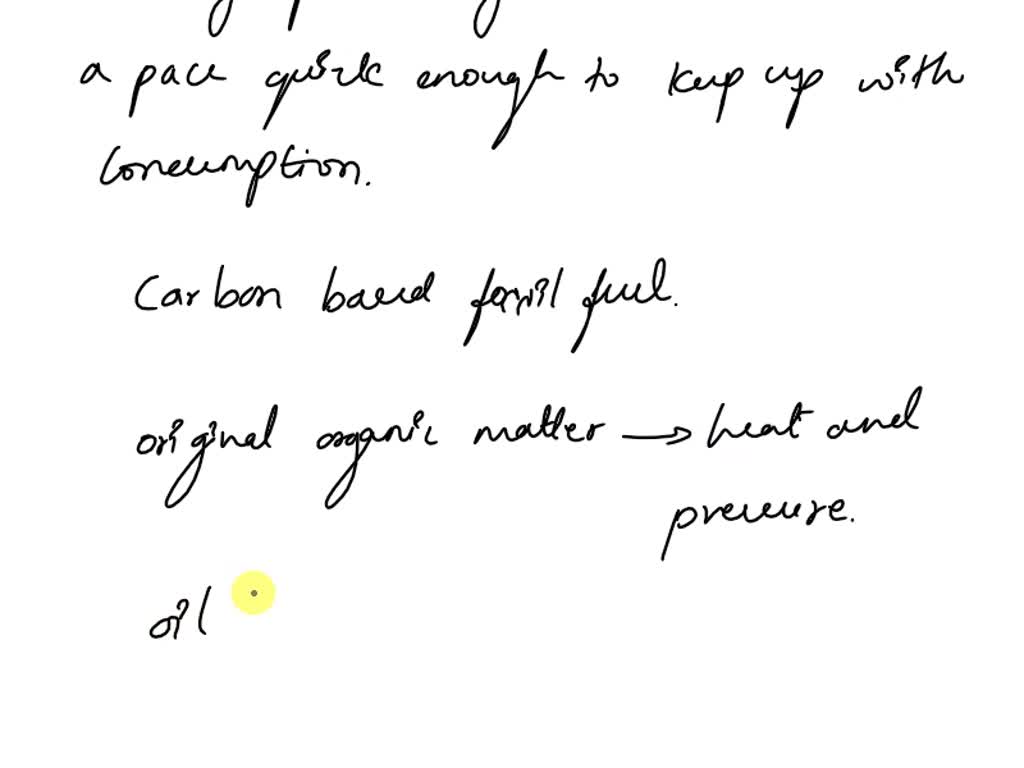 a pace quick enough to keep up with
consumption.
Carbon based fossil fuel.
original organic matter → heat and
pressure.
oil